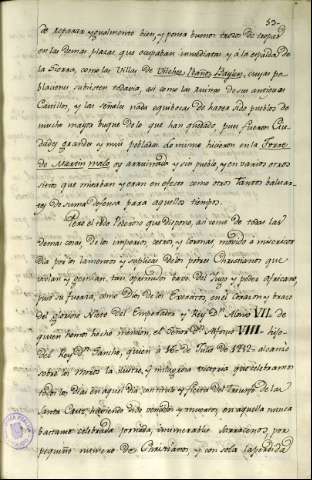 53.
de reparar, y igualmente bien, y poner buenos trozos de tropas
en las demas plazas que ocupaban inmediatas y á la espalda de
la Sierra, como las Villas de Vilches, Baños, Baylen, cuyas po
blaciones subsisten todavia, así como las ruinas de sus antiguos
Castillos, y las señales nada equivocas de haver sido pueblos de
mucho mayor buque de lo que han quedado, pues fueron Ciu
dades grandes y muí pobladas lo mismo hicieron en la Torre
de Martin malo oy arruinada y sin pueblo, y en varios otros
sitios que miraban y eran en efecto como otros tantos baluar
tes de suma defensa para aquellos tiempos.
Pero el todo Poderoso que dispone, así como de todas las
demas cosas, de los imperios, cetros, y coronas movido a misericor
dia por los lamentos y suplicas de los pobres Christianos que
vivian y gemian tan oprimidos bajo del Jugo y poder africano,
puso su fuerza, como Dios de los Exercitos, en el corazon y brazo
del glorioso Nieto del Emperador y Rey Dn. Alonso VII. de
quien hemos hecho mencion, el Señor Dn. Alonso VIII. hijo
del Rey Dn. Sancho, quien á 16 de Julio de 1212 alcanzó
sobre los moros la ilustre, y milagrosa victoria que celebramos
todos los años en aquel dia con titulo y fiesta del Triunfo de la
Santa Cruz, haviendo sido vencidos y muertos en aquella nunca
bastante celebrada jornada, innumerables sarracenos, por
pequeño numero de Christianos y con sola la perdida